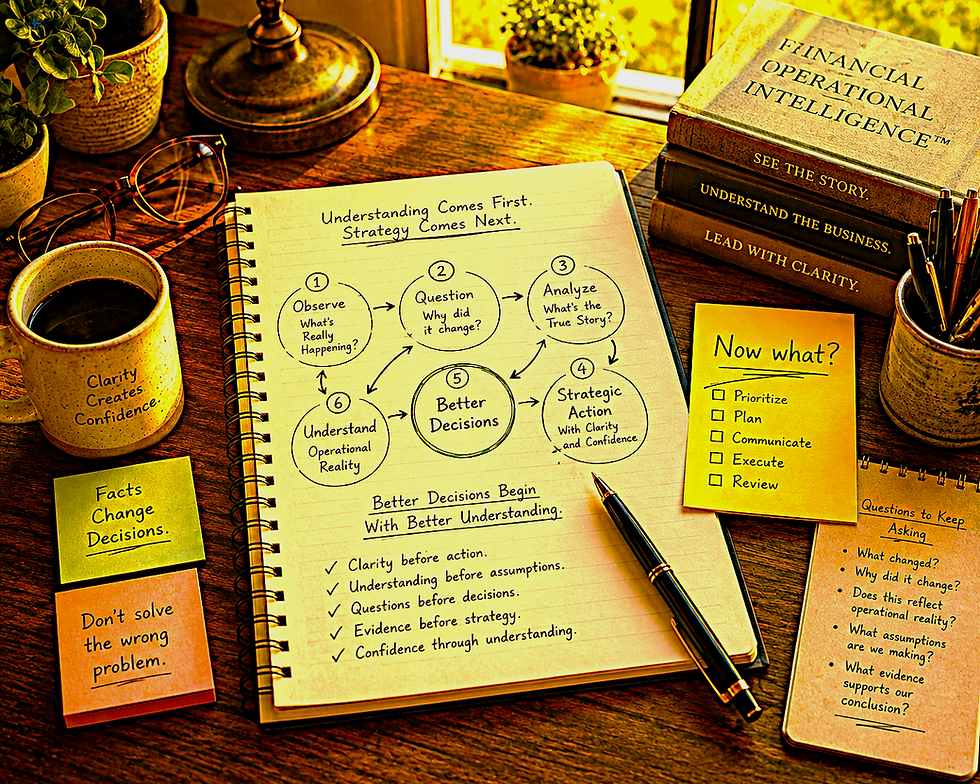 Understanding Comes First.
Strategy Comes Next.
1
Observe
What's
Really
Happening?
2
Question
Why did
it change?
3
Analyze
What's the
True Story?
4
Strategic
Action
With Clarity
and Confidence
5
Better
Decisions
6
Understand
Operational
Reality
Better Decisions Begin
With Better Understanding.
✓ Clarity before action.
✓ Understanding before assumptions.
✓ Questions before decisions.
✓ Evidence before strategy.
✓ Confidence through understanding.
Clarity
Creates
Confidence.
Facts
Change
Decisions.
Don't solve
the wrong
problem.
FIINANCIAL
OPERATIONAL
INTELLIGENCE™
SEE THE STORY.
UNDERSTAND THE BUSINESS.
LEAD WITH CLARITY.
Now what?
☐ Prioritize
☐ Plan
☐ Communicate
☐ Execute
☐ Review
Questions to Keep
Asking
• What changed?
• Why did it change?
• Does this reflect
operational reality?
• What assumptions
are we making?
• What evidence
supports our
conclusion?